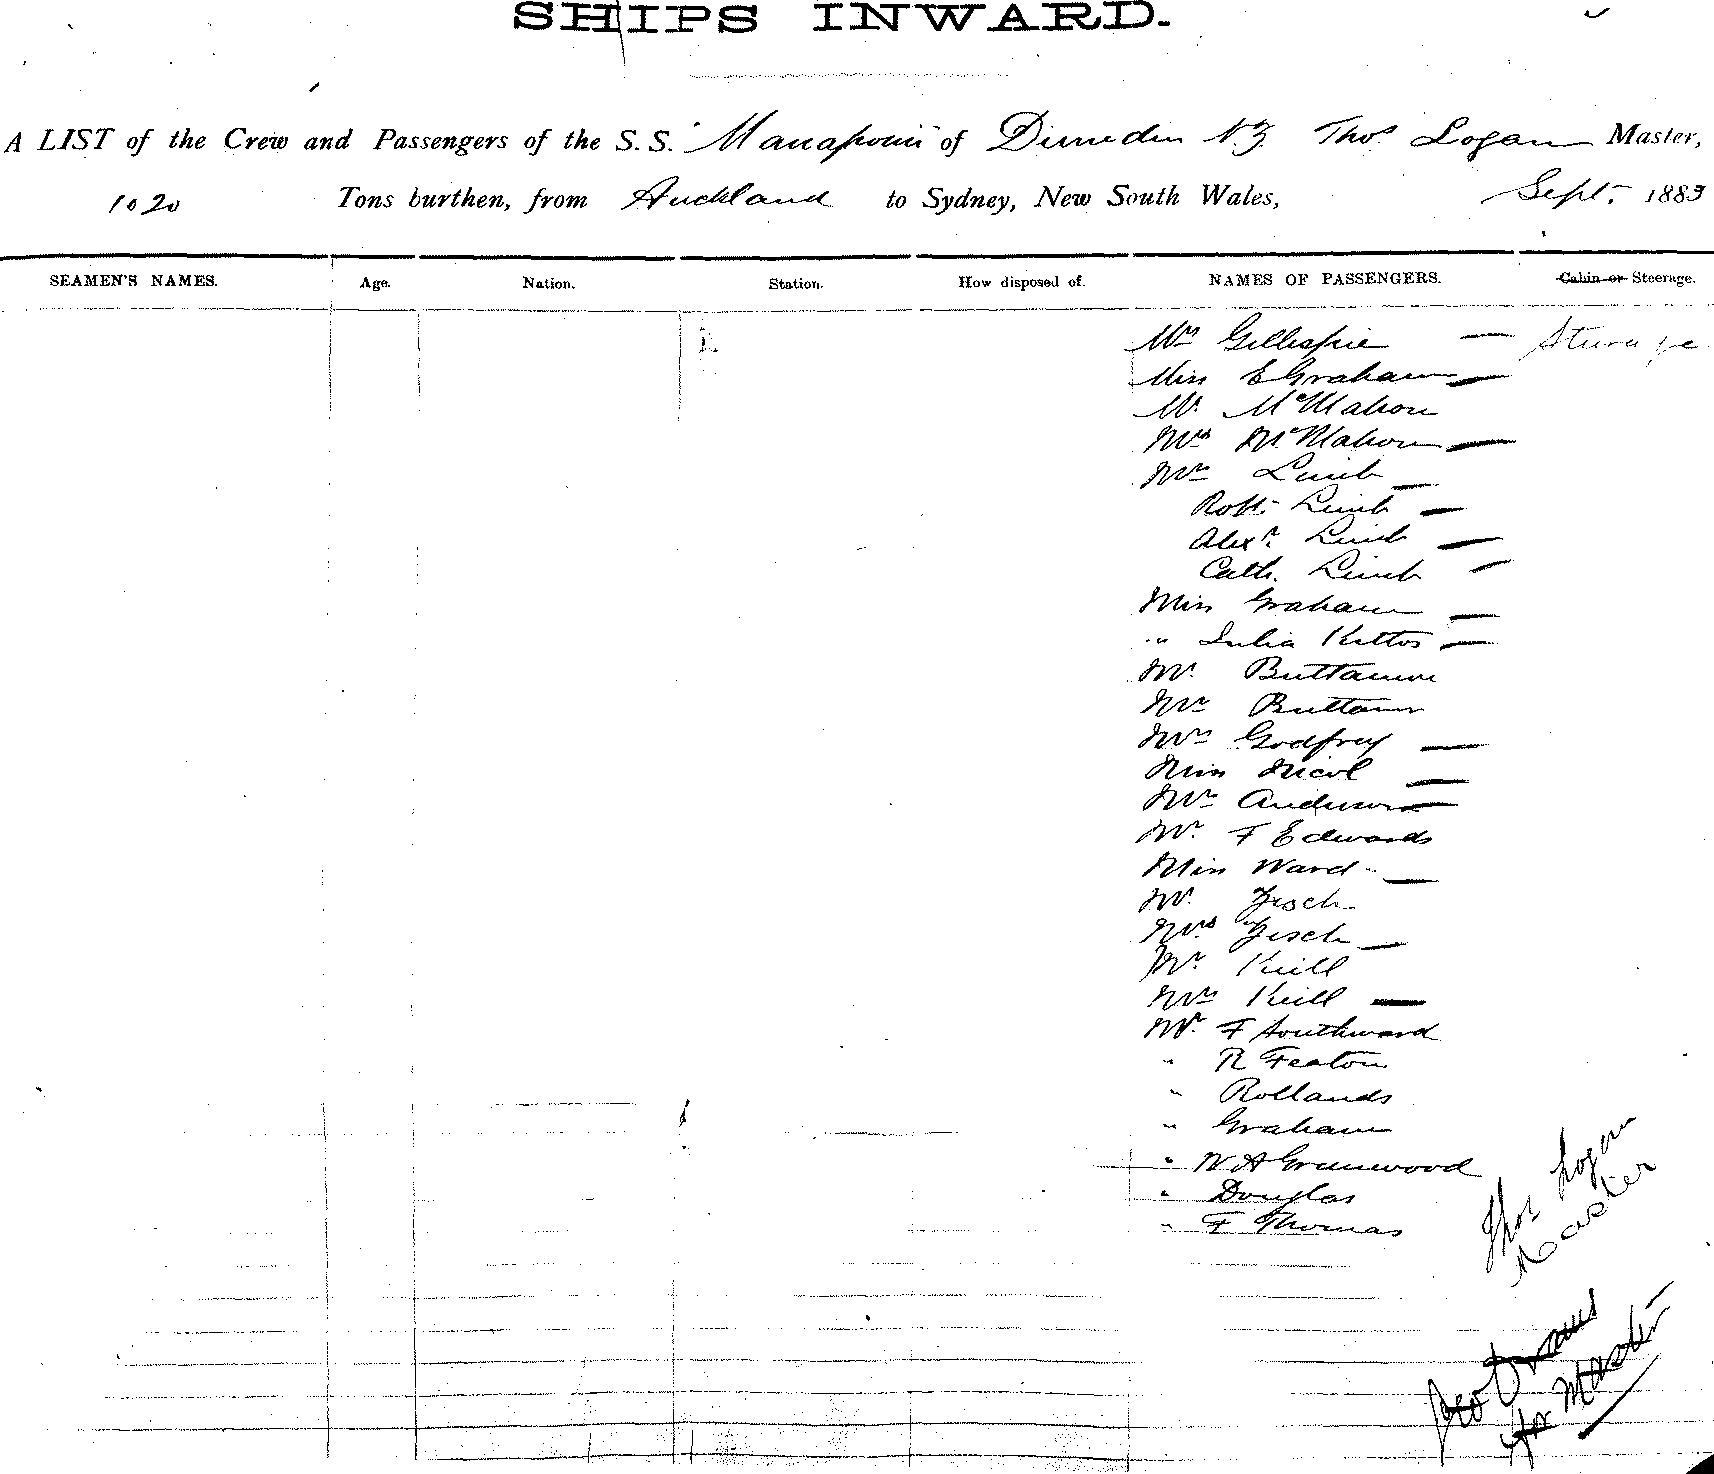 SHIPS INWARD.
A LIST of the Crew and Passengers of the S.S. "Manapouri" of Dunedin N.Z. Thos Logan Master,
1020 Tons burthen, from Auckland to Sydney, New South Wales, Sept. 1883
SEAMEN'S NAMES. Age. Nation. Station. How disposed of. NAMES OF PASSENGERS. Cabin or Steerage.
Mrs Gillespie — Steerage
Miss E Graham —
Mr. McMahon
Mrs McMahon —
Mrs Limb —
Robt. Limb —
Alexr. Limb —
Cath. Limb —
Miss Graham —
" Julia Kittos —
Mr.
Mrs
Mrs Godfrey —
Miss Nicol —
Mrs Anderson —
Mr. F Edwards
Miss Ward —
Mr. Zisch
Mrs Zisch —
Mr. Keill
Mrs Keill —
Mr. F Southward
" R Featon
" Rollands
" Graham
" W A Greenwood
" Douglas
" F Thomas
Thos Logan
Master
for Master